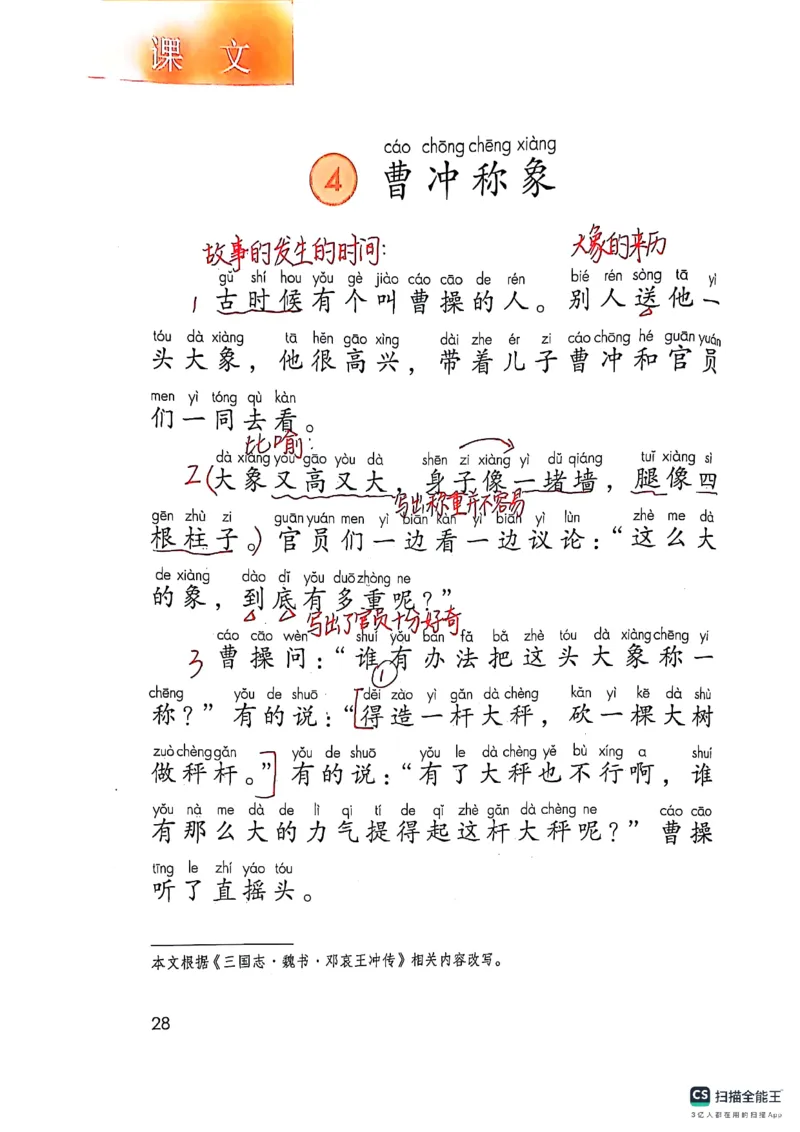 课 文
cáo chōng chēng xiàng
4 曹冲称象
故事的发生的时间:
大象的来历
gǔ shí hou yǒu gè jiào cáo cāo de rén bié rén sòng tā yì
1 古时候有个叫曹操的人。别人送他一
tóu dà xiàng tā hěn gāo xìng dài zhe ér zi cáo chōng hé guān yuán
头大象，他很高兴，带着儿子曹冲和官员
men yì tóng qù kàn
们一同去看。
比喻:
dà xiàng yòu gāo yòu dà shēn zi xiàng yì dǔ qiáng tuǐ xiàng sì
2(大象又高又大，身子像一堵墙，腿像四
写出称重并不容易
gēn zhù zi guān yuán men yì biān kàn yì biān yì lùn zhè me dà
根柱子。)官员们一边看一边议论：“这么大
de xiàng dào dǐ yǒu duō zhòng ne
的象，到底有多重呢？”
写出了官员十分好奇
cáo cāo wèn shuí yǒu bàn fǎ bǎ zhè tóu dà xiàng chēng yi
3 曹操问：“谁有办法把这头大象称一
①
chēng yǒu de shuō děi zào yì gǎn dà chèng kǎn yì kē dà shù
称？”有的说：“[得造一杆大秤，砍一棵大树
zuò chèng gǎn yǒu de shuō yǒu le dà chèng yě bù xíng a shuí
做秤杆。”]有的说：“有了大秤也不行啊，谁
yǒu nà me dà de lì qi tí de qǐ zhè gǎn dà chèng ne cáo cāo
有那么大的力气提得起这杆大秤呢？”曹操
tīng le zhí yáo tóu
听了直摇头。
本文根据《三国志·魏书·邓哀王冲传》相关内容改写。
28
CS 扫描全能王
3亿人都在用的扫描App